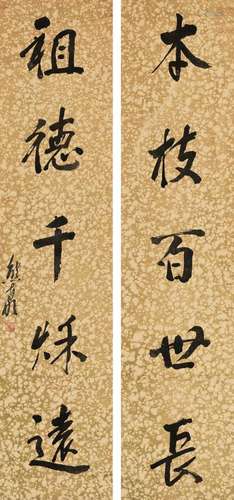 本枝百世長
祖德千秌遠